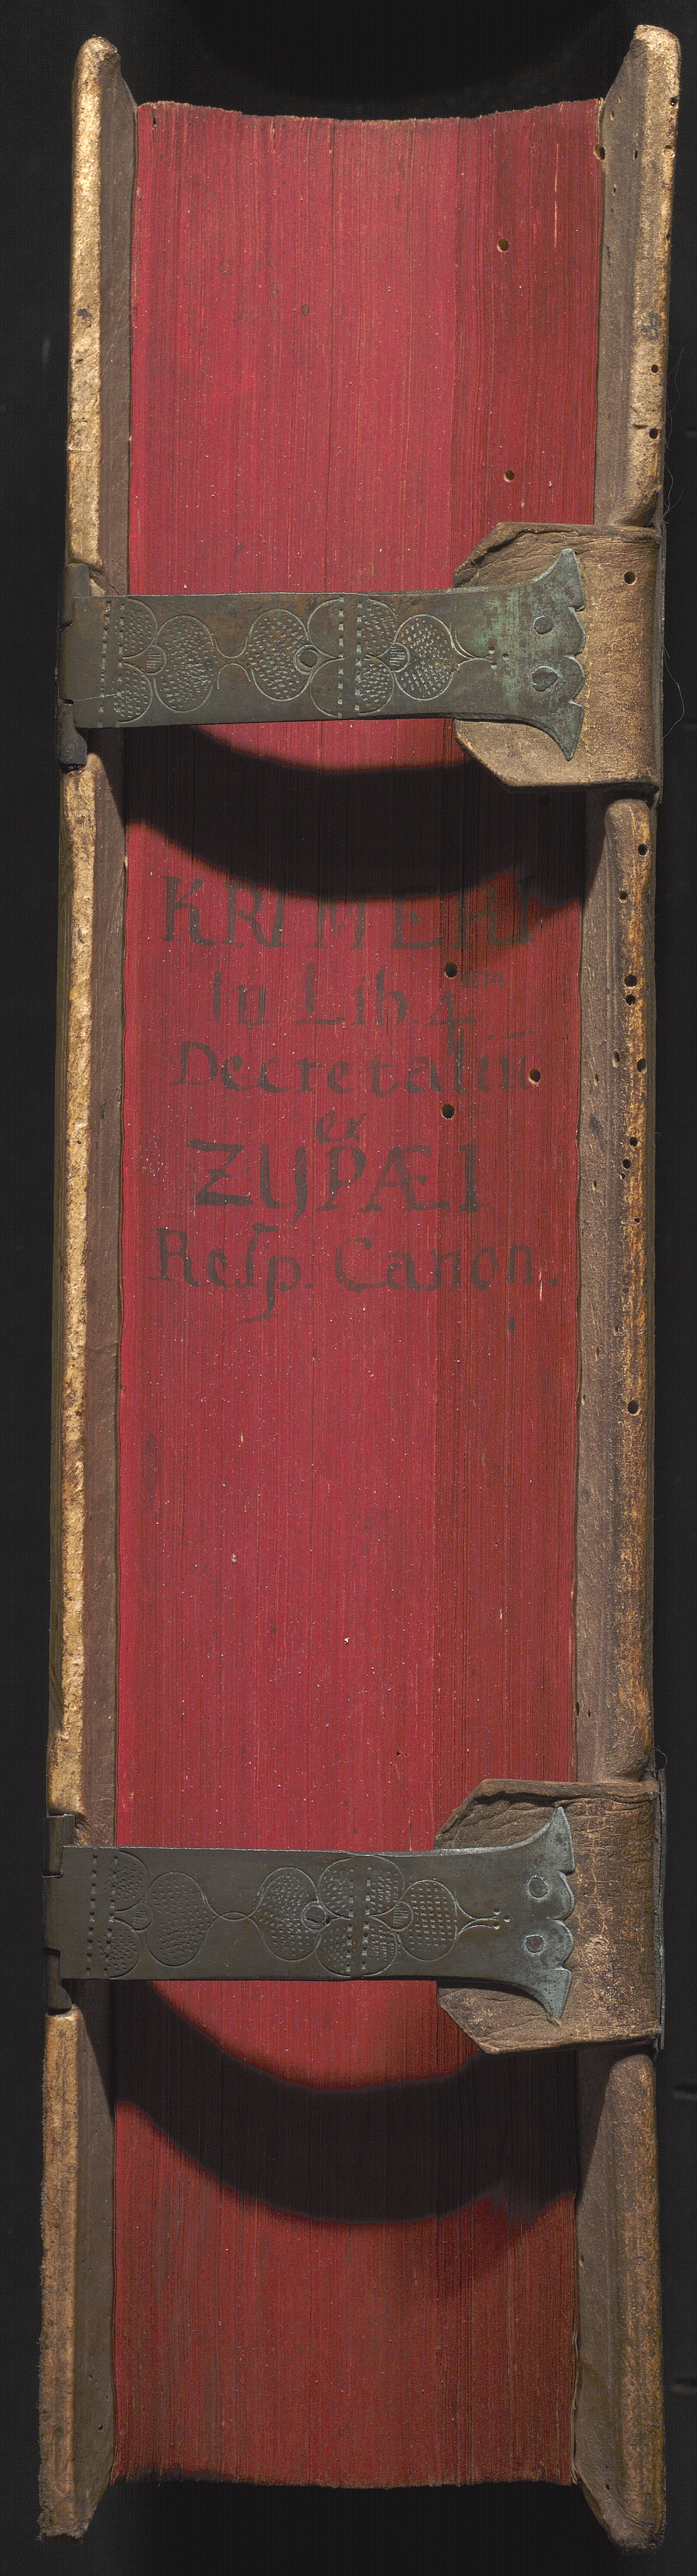 KRIMERI
In Lib 4um
Decretaliū
ex
ZYPÆI
Resp. Canon.